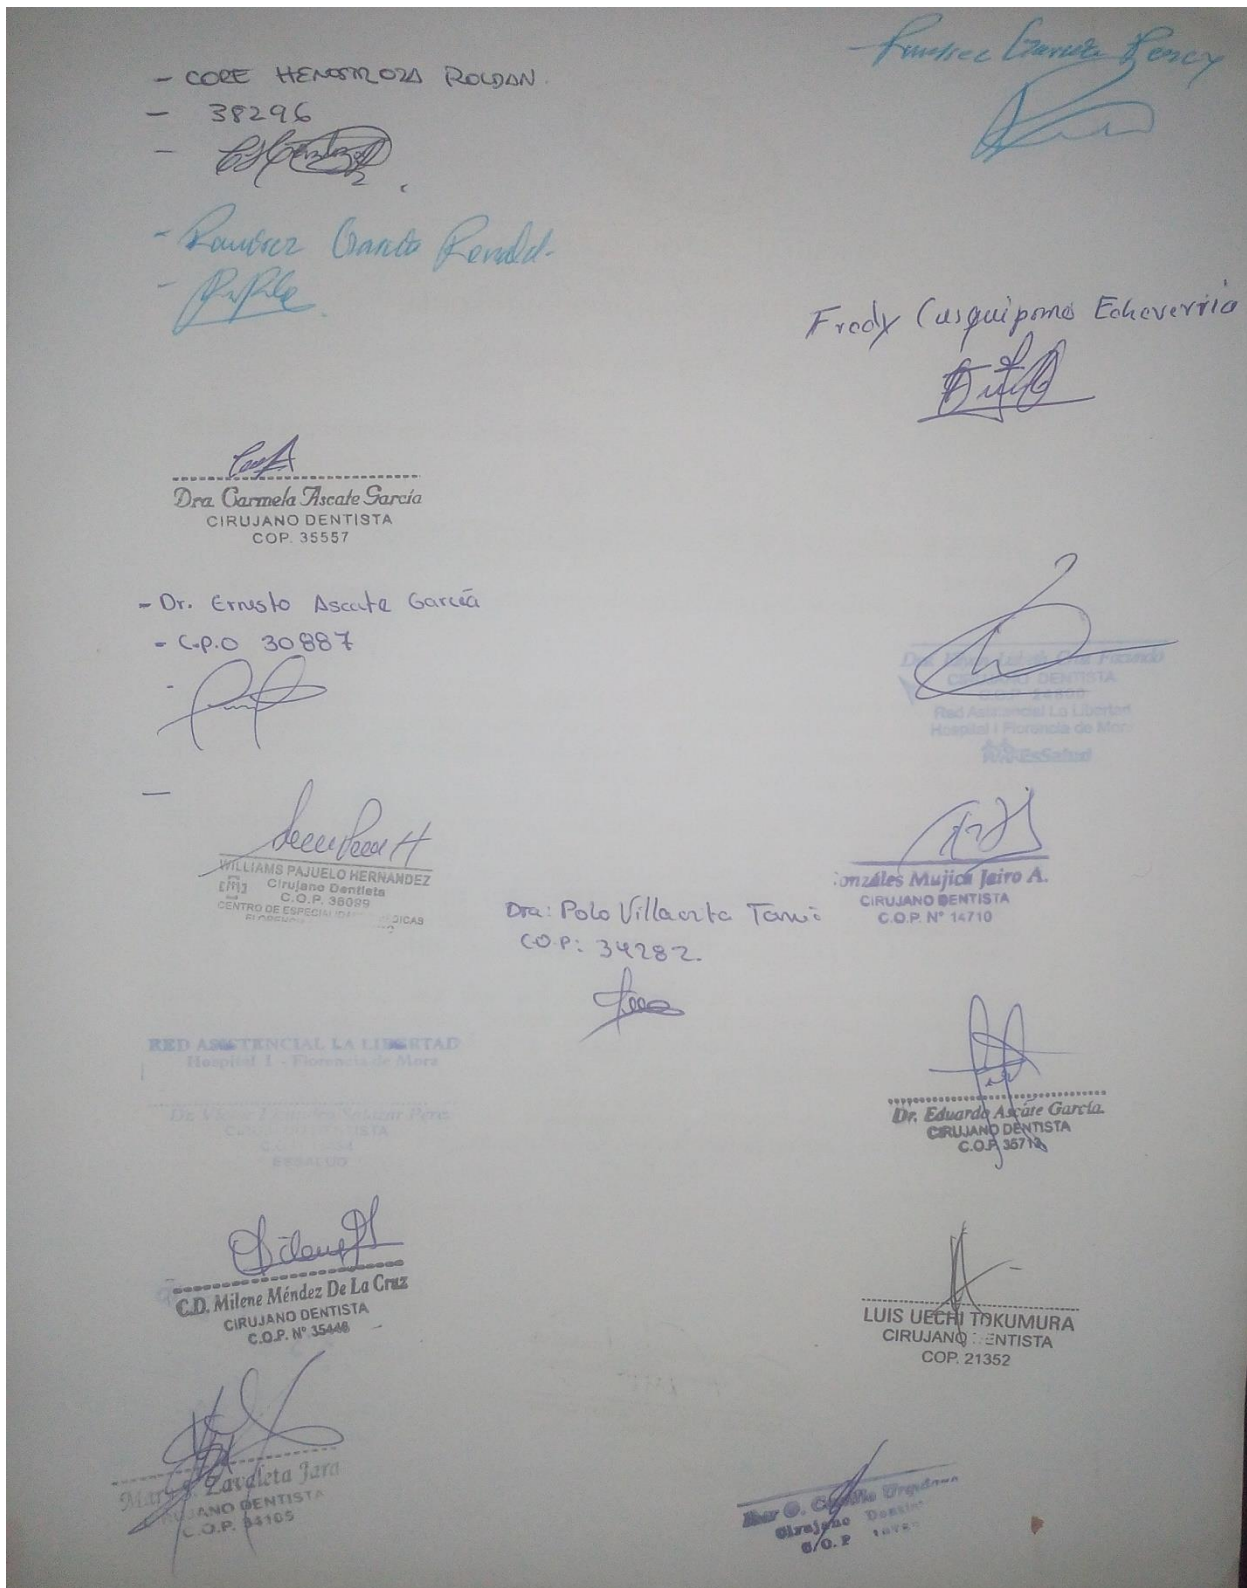 - CORE HENOSTROZA ROLDAN
- 38296
-
Ramirez Garcia Percy
- Ramirez Garcia Renald
-
Fredy Cusquipoma Echeverria
Dra. Carmela Ascate García
CIRUJANO DENTISTA
COP. 35557
- Dr. Ernesto Ascate García
- C.P.O 30887
-
CIRUJANO DENTISTA
C.O.P.
Red Asistencial La Libertad
Hospital I Florencia de Mor
EsSalud
WILLIAMS PAJUELO HERNANDEZ
Cirujano Dentista
C.O.P. 36099
CENTRO DE
Gonzáles Mujica Jairo A.
CIRUJANO DENTISTA
C.O.P. N° 14710
Dra: Polo Villacorta Tania
C.O.P: 34282.
RED ASISTENCIAL LA LIBERTAD
Hospital I - Florencia de Mora
Salazar Perez
ESSALUD
Dr. Eduardo Ascáte García.
CIRUJANO DENTISTA
C.O.P.
C.D. Milene Méndez De La Cruz
CIRUJANO DENTISTA
C.O.P. N° 35448
LUIS UECHI TOKUMURA
CIRUJANO DENTISTA
COP. 21352
Zavaleta Jara
CIRUJANO DENTISTA
C.O.P. 34105
Cirujano
C.O.P